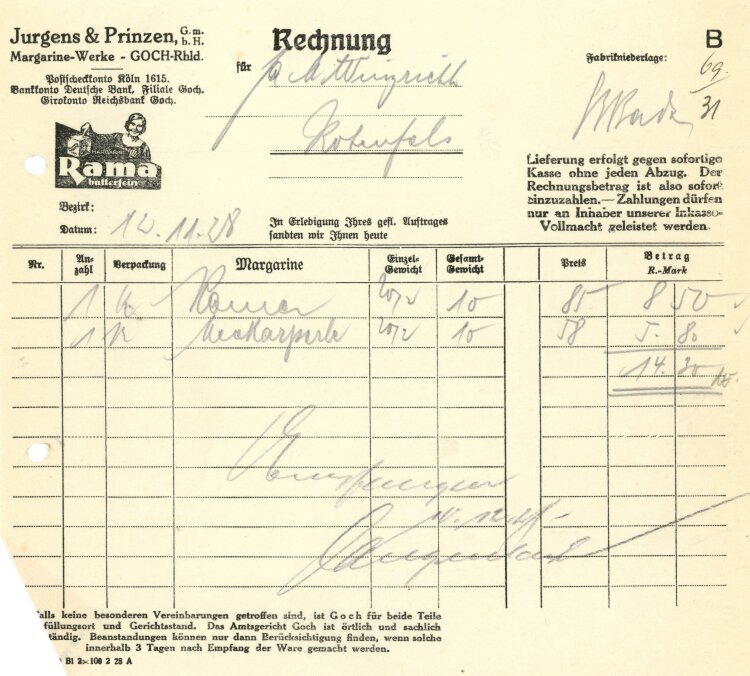 Jurgens & Prinzen, G.m.b.H.
Margarine-Werke - GOCH-Rhld.
Postscheckkonto Köln 1615.
Bankkonto Deutsche Bank, Filiale Goch.
Girokonto Reichsbank Goch.
MARGARINE
Rama
butterfein
Rechnung
für
Rotenfels
B
Fabrikniederlage: 69/31
Lieferung erfolgt gegen sofortige
Kasse ohne jeden Abzug. Der
Rechnungsbetrag ist also sofort
einzuzahlen.— Zahlungen dürfen
nur an Inhaber unserer Inkasso-
Vollmacht geleistet werden.
Bezirk:
Datum: 12.11.28
In Erledigung Ihres gefl. Auftrages
sandten wir Ihnen heute
Nr. An-zahl Verpackung Margarine Einzel-Gewicht Gesamt-Gewicht Preis Betrag R.-Mark
1 K Rama 20/2 10 85 8 50
1 K Neckarperle 20/2 10 58 5.80
14.30
Empfangen
alls keine besonderen Vereinbarungen getroffen sind, ist Goch für beide Teile
füllungsort und Gerichtsstand. Das Amtsgericht Goch ist örtlich und sachlich
tändig. Beanstandungen können nur dann Berücksichtigung finden, wenn solche
innerhalb 3 Tagen nach Empfang der Ware gemacht werden.
Bl 2 100 2 28 A